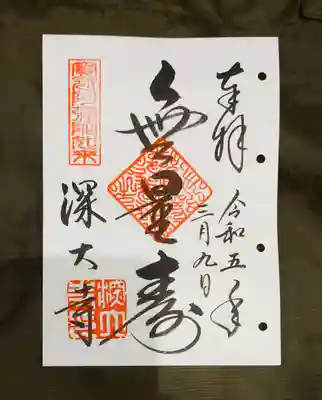 奉拝
令和五年
三月九日
無量寿
深大寺